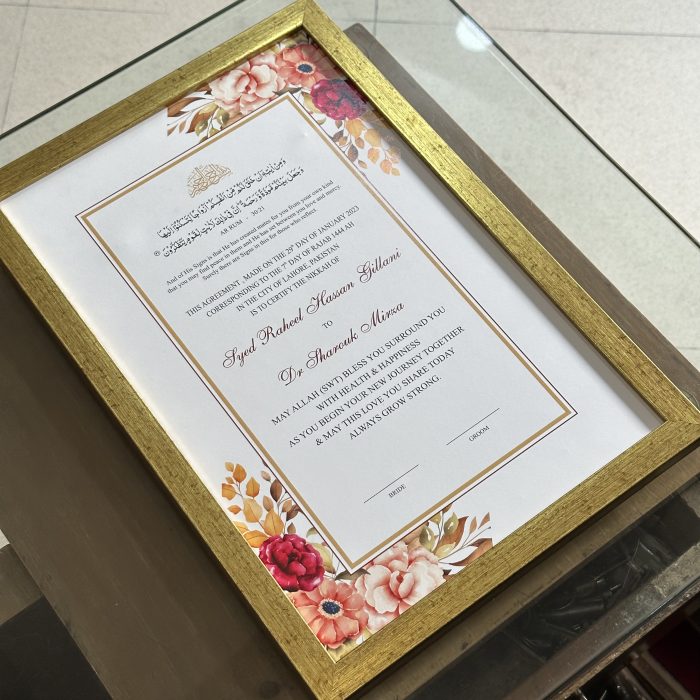 وَمِنْ آيَاتِهِ أَنْ خَلَقَ لَكُم مِّنْ أَنفُسِكُمْ أَزْوَاجًا لِّتَسْكُنُوا إِلَيْهَا
وَجَعَلَ بَيْنَكُم مَّوَدَّةً وَرَحْمَةً إِنَّ فِي ذَٰلِكَ لَآيَاتٍ لِّقَوْمٍ يَتَفَكَّرُونَ
AR RUM - 30:21
And of His Signs is that He has created mates for you from your own kind
that you may find peace in them and He has set between you love and mercy.
Surely there are Signs in this for those who reflect.
THIS AGREEMENT , MADE ON THE 29th DAY OF JANUARY 2023
CORRESPONDING TO THE 7th DAY OF RAJAB 1444 AH
IN THE CITY OF LAHORE, PAKISTAN
IS TO CERTIFY THE NIKKAH OF
Syed Raheel Hassan Gillani
TO
Dr Sharouk Mirza
MAY ALLAH (SWT) BLESS YOU SURROUND YOU
WITH HEALTH & HAPPINESS
AS YOU BEGIN YOUR NEW JOURNEY TOGETHER
& MAY THIS LOVE YOU SHARE TODAY
ALWAYS GROW STRONG.
BRIDE
GROOM